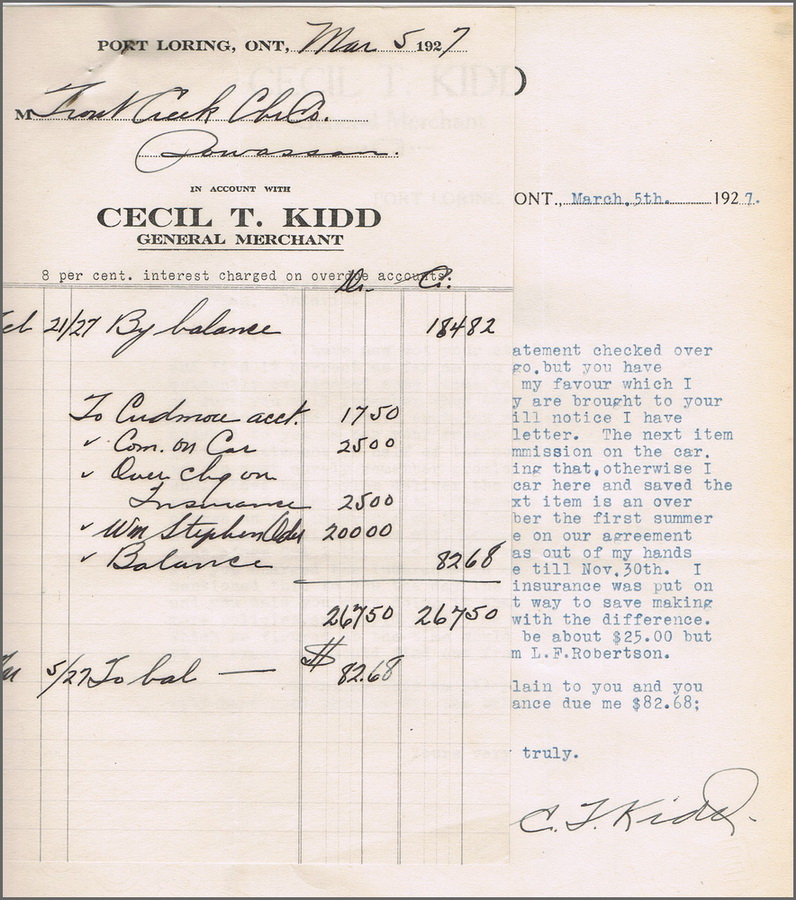 PORT LORING, ONT., Mar 5 1927
M Trout Creek Che Co.
Powassan.
IN ACCOUNT WITH
CECIL T. KIDD
GENERAL MERCHANT
8 per cent. interest charged on overdue accounts.
Dr. Cr.
21/27 By balance 184 82
To Cudmore acct. 17 50
✓ Com. on Car 25 00
✓ Over chg on
Insurance 25 00
✓ Wm Stephen 200 00
✓ Balance 82 68
267 50 267 50
5/27 To bal — $ 82.68
ONT., March,5th. 1927.
atement checked over
go,but you have
my favour which I
y are brought to your
ill notice I have
letter. The next item
mmission on the car.
ing that,otherwise I
car here and saved the
xt item is an over
ber the first summer
e on our agreement
as out of my hands
e till Nov,30th. I
insurance was put on
t way to save making
with the difference.
be about $25.00 but
m L.F.Robertson.
lain to you and you
ance due me $82.68;
truly.
C. T. Kidd.